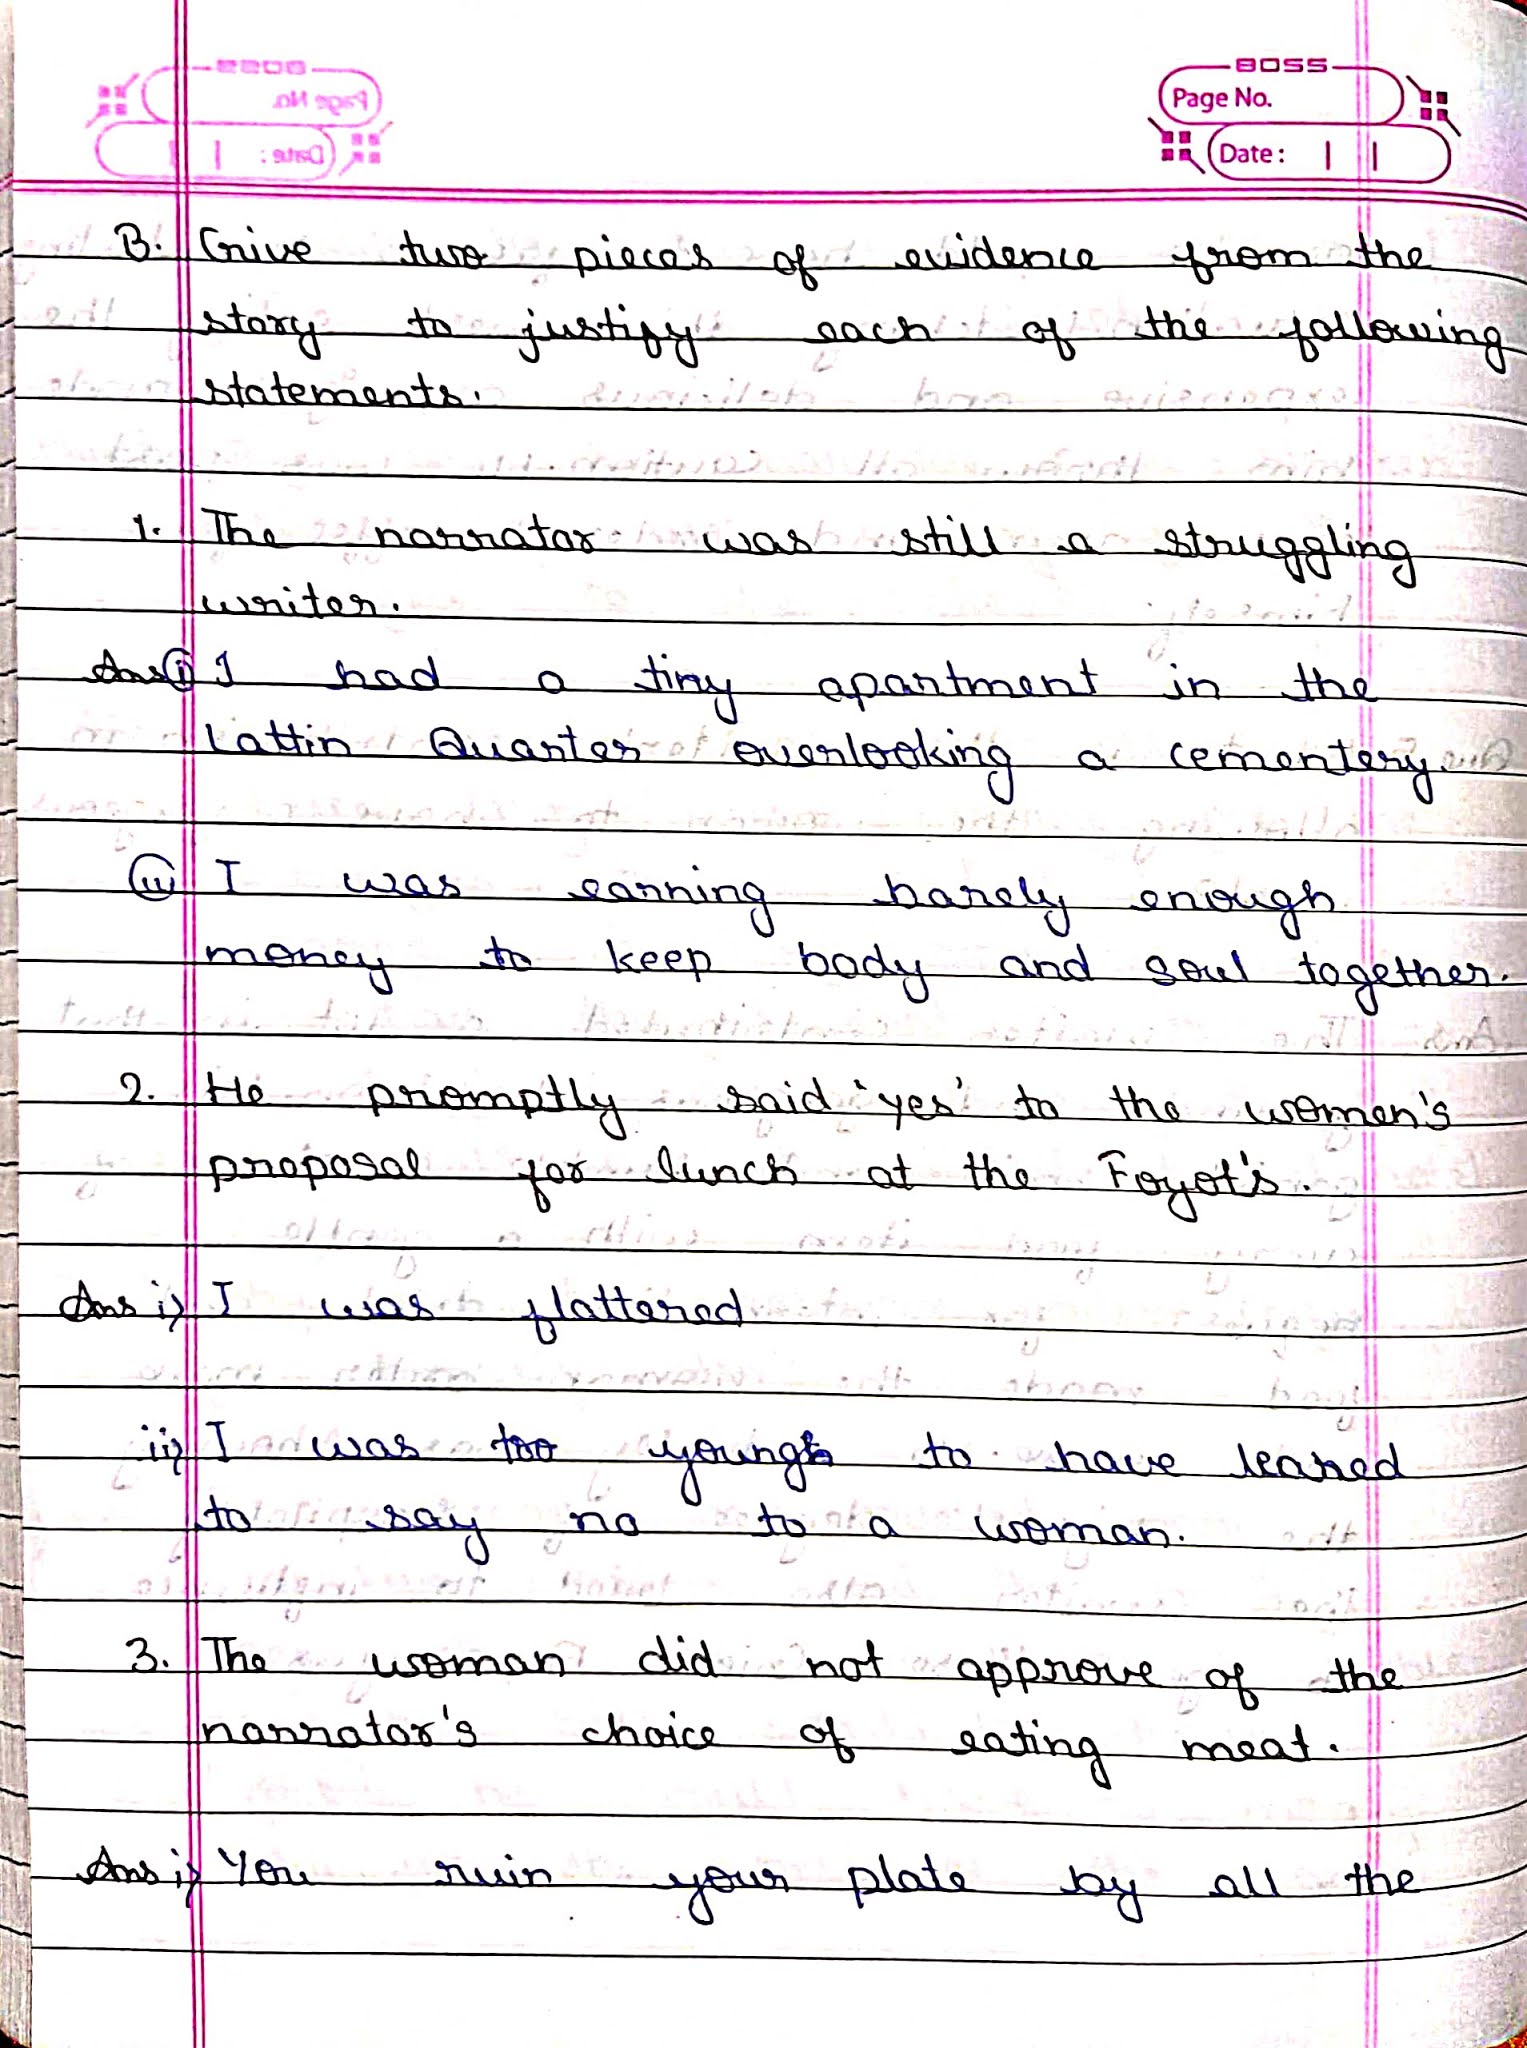 BOSS
Page No.
Date :
B. Give two pieces of evidence from the
story to justify each of the following
statements.
1. The narrator was still a struggling
writer.
Ans (i) I had a tiny apartment in the
Lattin Quarter overlooking a cementery.
(ii) I was earning barely enough
money to keep body and soul together.
2. He promptly said 'yes' to the women's
proposal for lunch at the Foyot's.
Ans i) I was flattered
ii) I was too young to have leaned
to say no to a woman.
3. The woman did not approve of the
narrator's choice of eating meat.
Ans i) You ruin your plate by all the